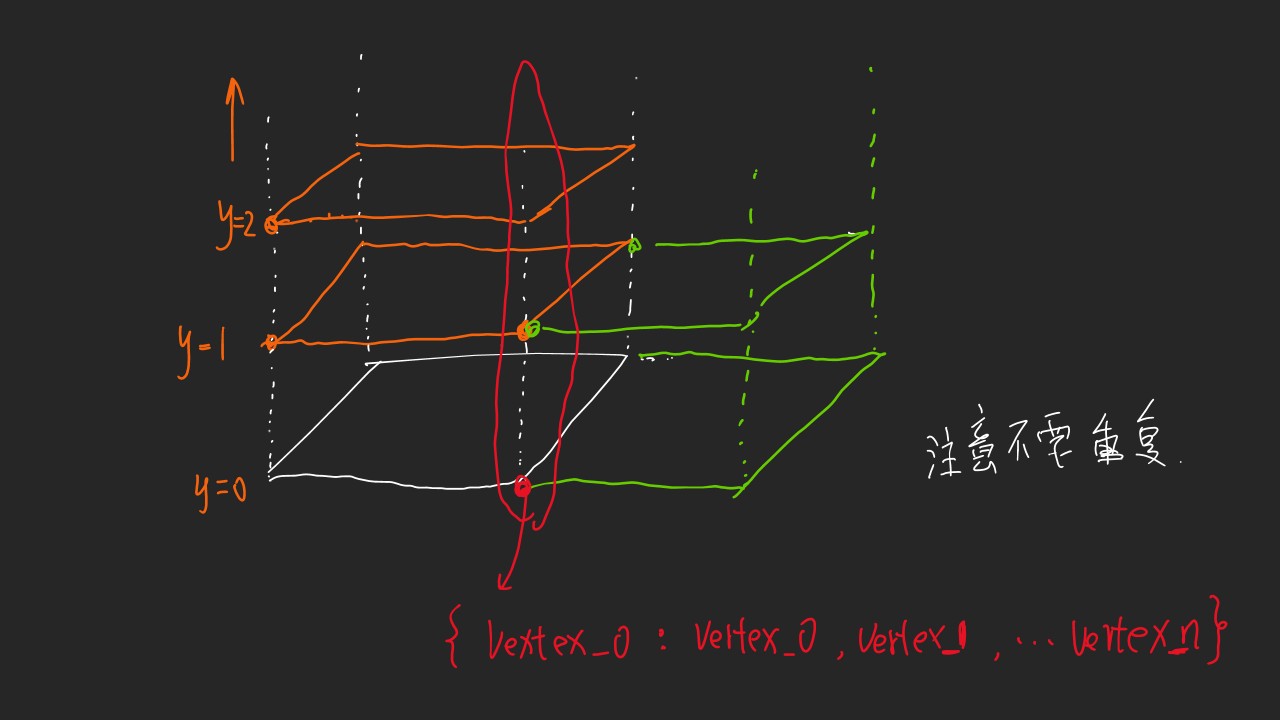 y=2
y=1
y=0
注意不要重复.
{ Vextex_0 : Vertex_0 , Vertex_1 , ... Vertex_n}